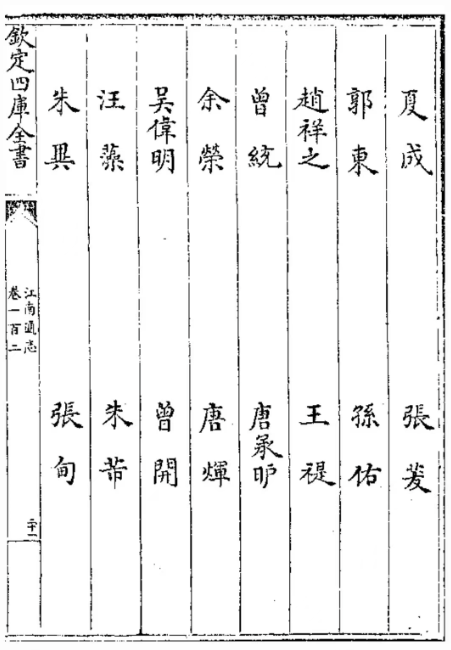 夏成　張茇
郭東　孫佑
趙祥之　王禔
曾統　唐承昈
余榮　唐煇
吳偉明　曾開
汪藻　朱芾
朱異　張甸
欽定四庫全書
江南通志
卷一百二
二十一